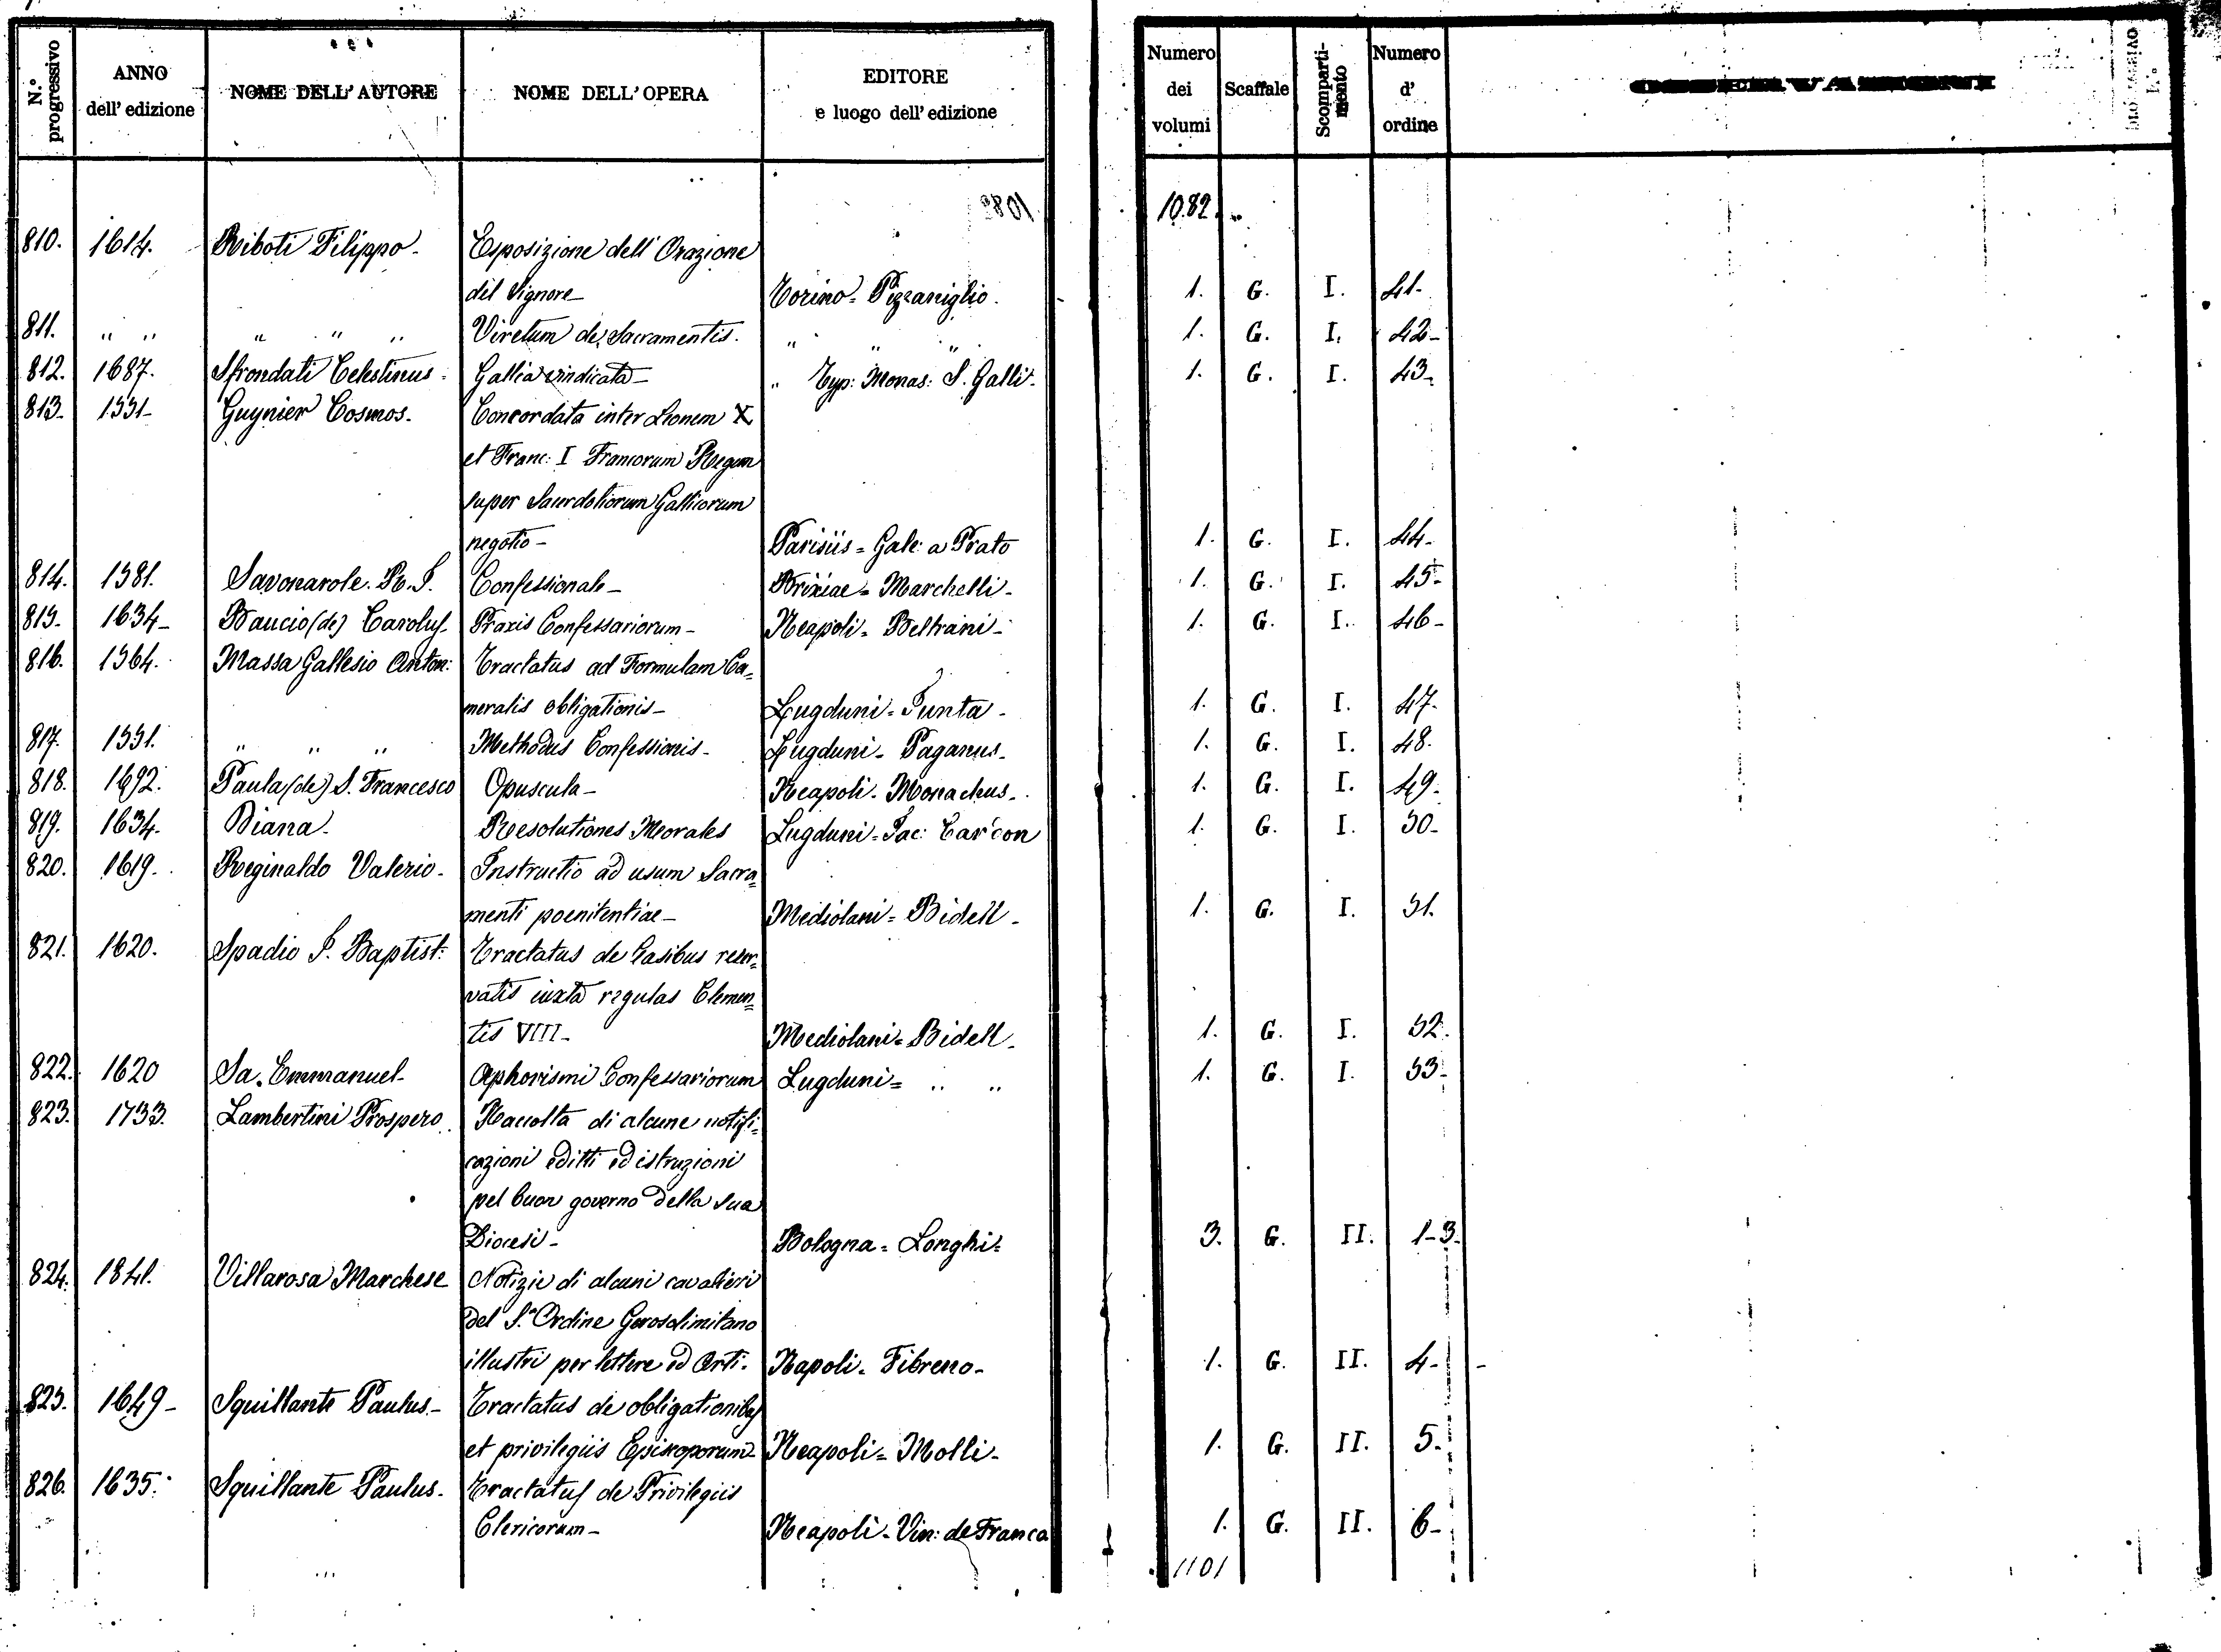 N.º progressivo
ANNO dell' edizione
NOME DELL'AUTORE
NOME DELL'OPERA
EDITORE e luogo dell'edizione
Numero dei volumi
Scaffale
Scomparti-mento
Numero d' ordine
1082
810. 1614. Riboti Filippo - Esposizione dell' Orazione
del Signore - Torino = Pizzaniglio. 1. G. I. 41-
811. " " " " " Viretum de Sacramentis. " " " 1. G. I. 42-
812. 1687. Sfrondati Celestinus - Gallia vindicata - " Typ: Monas: S. Galli- 1. G. I. 43-
813. 1551- Guynier Cosmos- Concordata inter Leonem X
et Franc: I Francorum Regem
super Sacerdotiorum Gallicorum
negotio - Parisiis = Gale: a Prato 1. G. I. 44-
814. 1581. Savonarole. Confessionale - Brixiae = Marchelli- 1. G. I. 45-
815- 1634- Baucio (de) Carolus- Praxis Confessariorum - Neapoli = Beltrani- 1. G. I. 46-
816. 1564. Massa Gallesio Anton: Tractatus ad Formulam Ca=
meralis obligationis - Lugduni = Junta- 1. G. I. 47-
817. 1551. " " " Methodus Confessionis - Lugduni - Paganus- 1. G. I. 48-
818. 1692. Paula (de) S. Francesco Opuscula - Neapoli - Monachus- 1. G. I. 49-
819. 1634- Diana- Resolutiones Morales Lugduni = Jac: Car'con 1. G. I. 50-
820. 1619. Reginaldo Valerio- Instructio ad usum Sacra=
menti poenitentiae - Mediolani = Bidell- 1. G. I. 51.
821. 1620. Spadio J. Baptist: Tractatus de Casibus reser=
vatis iuxta regulas Clemen=
tis VIII- Mediolani = Bidell- 1. G. I. 52.
822. 1620 Sa. Emmanuel- Aphorismi Confessariorum Lugduni = " " 1. G. I. 53-
823. 1733. Lambertini Prospero. Raccolta di alcune notifi=
cazioni editti ed istruzioni
pel buon governo della sua
Diocesi - Bologna = Longhi= 3. G. II. 1-3-
824. 1841. Villarosa Marchese Notizie di alcuni cavalieri
del S. Ordine Gerosolimitano
illustri per lettere ed Arti- Napoli - Fibreno- 1. G. II. 4-
825. 1649- Squillante Paulus- Tractatus de obligationibus
et privilegiis Episcoporum- Neapoli = Molli- 1. G. II. 5-
826. 1635. Squillante Paulus- Tractatus de Privilegiis
Clericorum - Neapoli - Vin: de Franca 1. G. II. 6-
1101